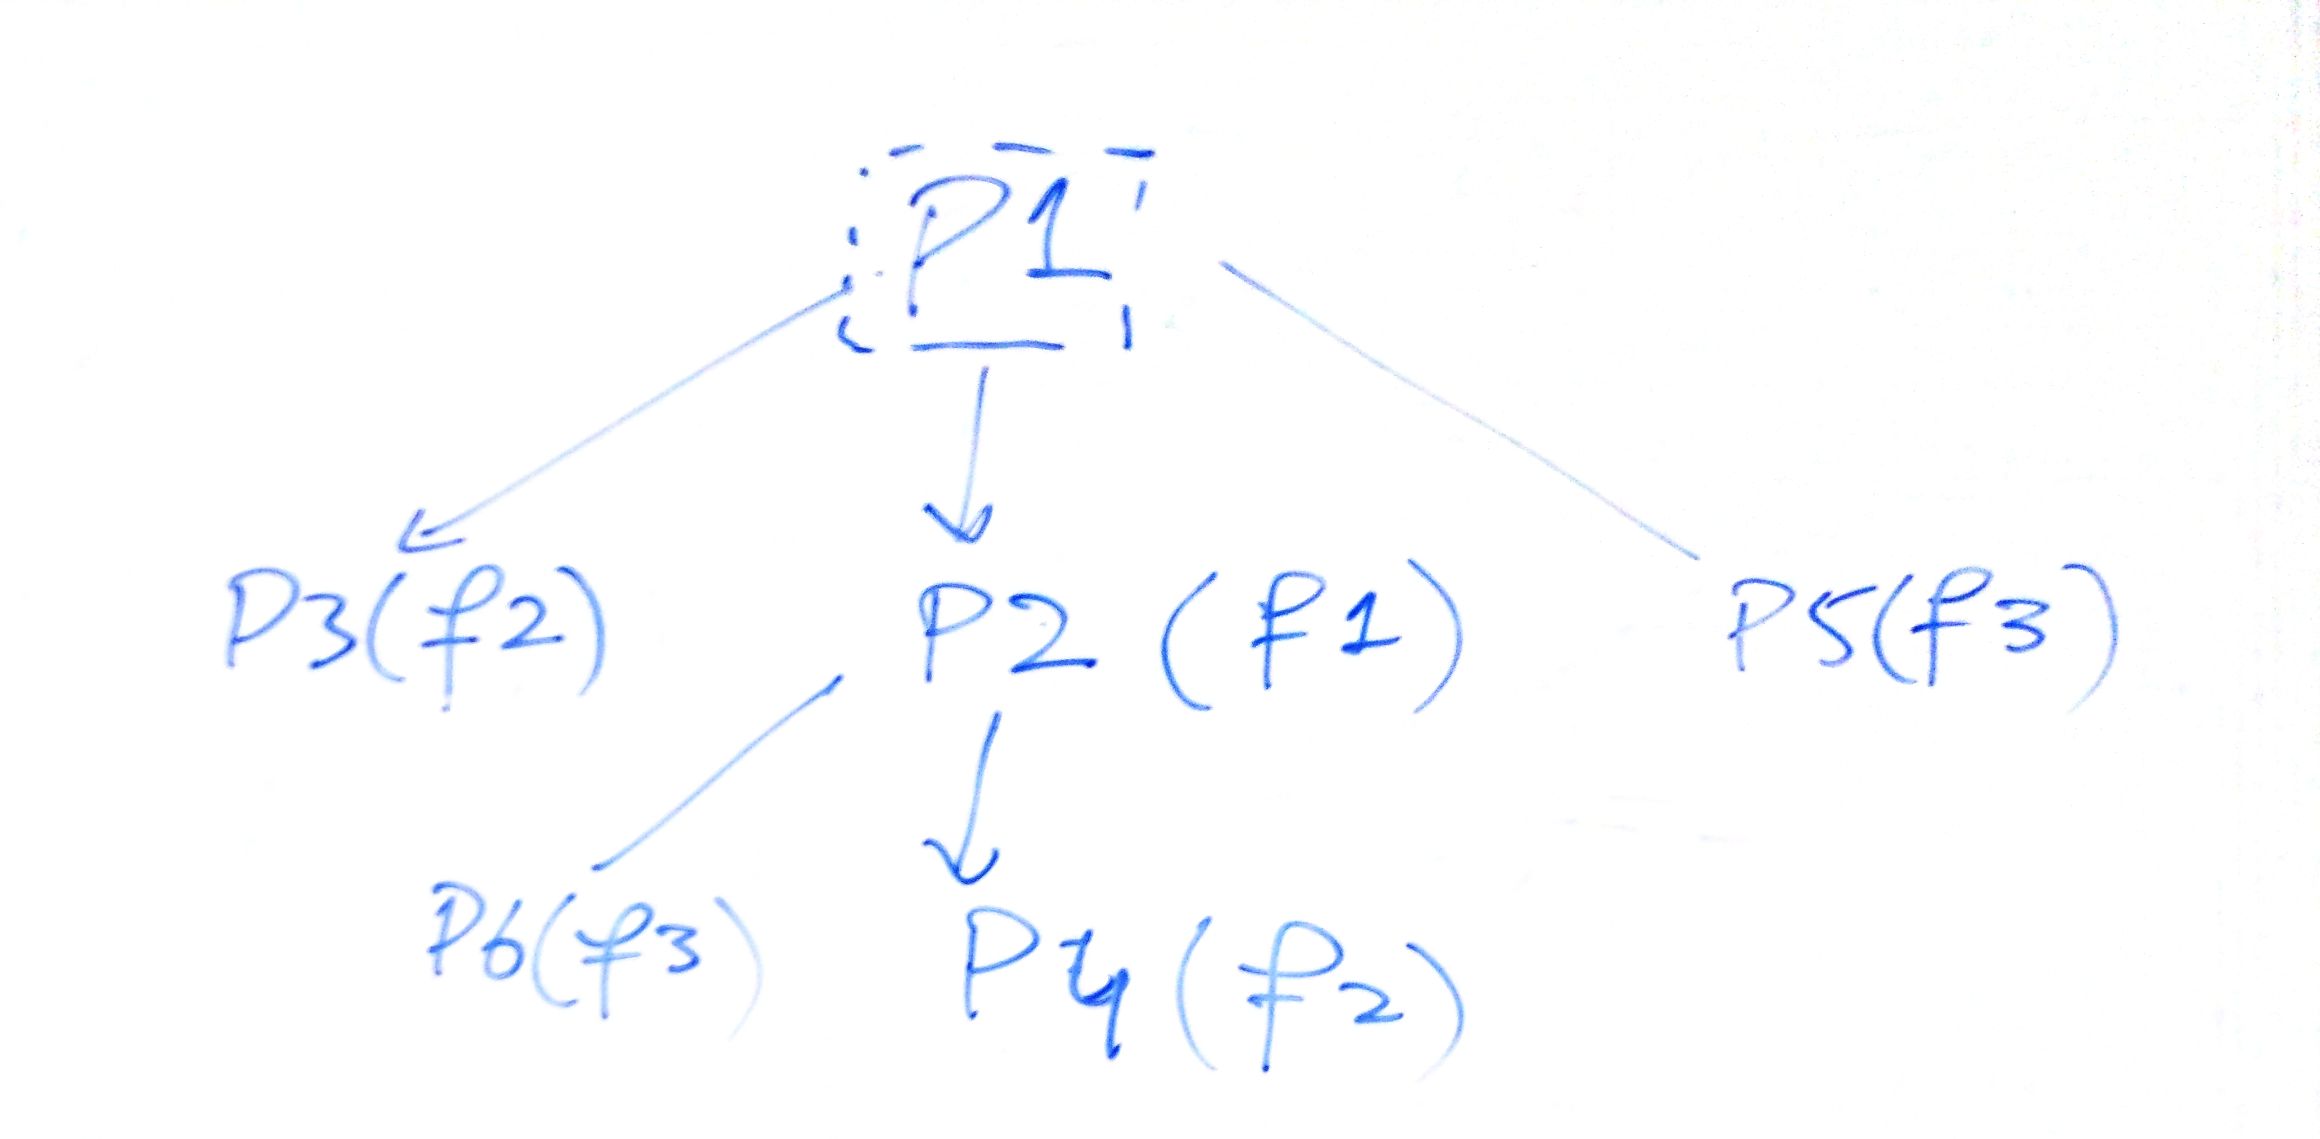 P1
P3(f2) P2 (f1) P5(f3)
P6(f3) P4 (f2)